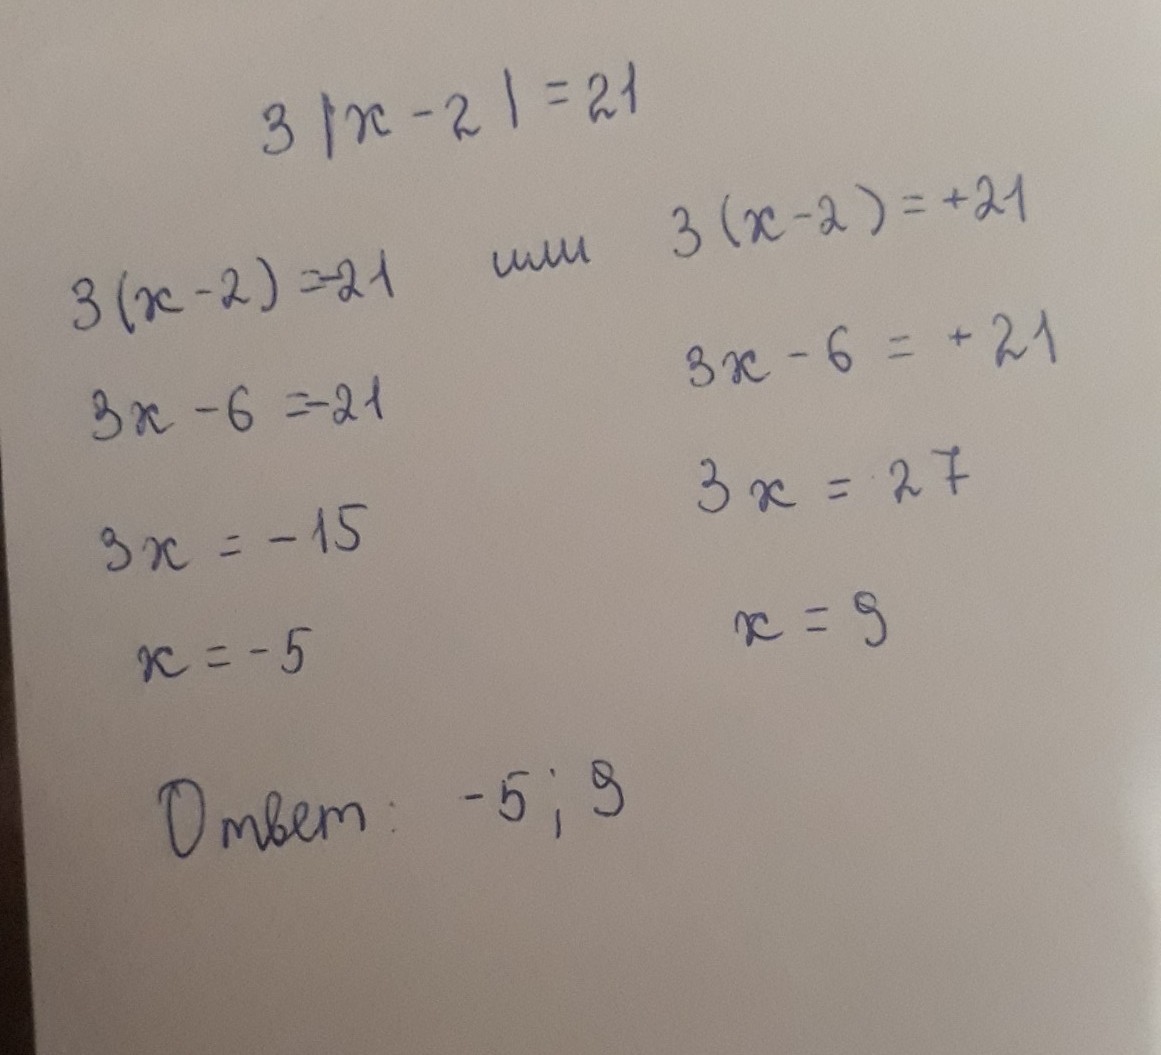 3|x-2|=21
3(x-2)=-21 или 3(x-2)=+21
3x-6=-21 3x-6=+21
3x=-15 3x=27
x=-5 x=9
Ответ: -5; 9